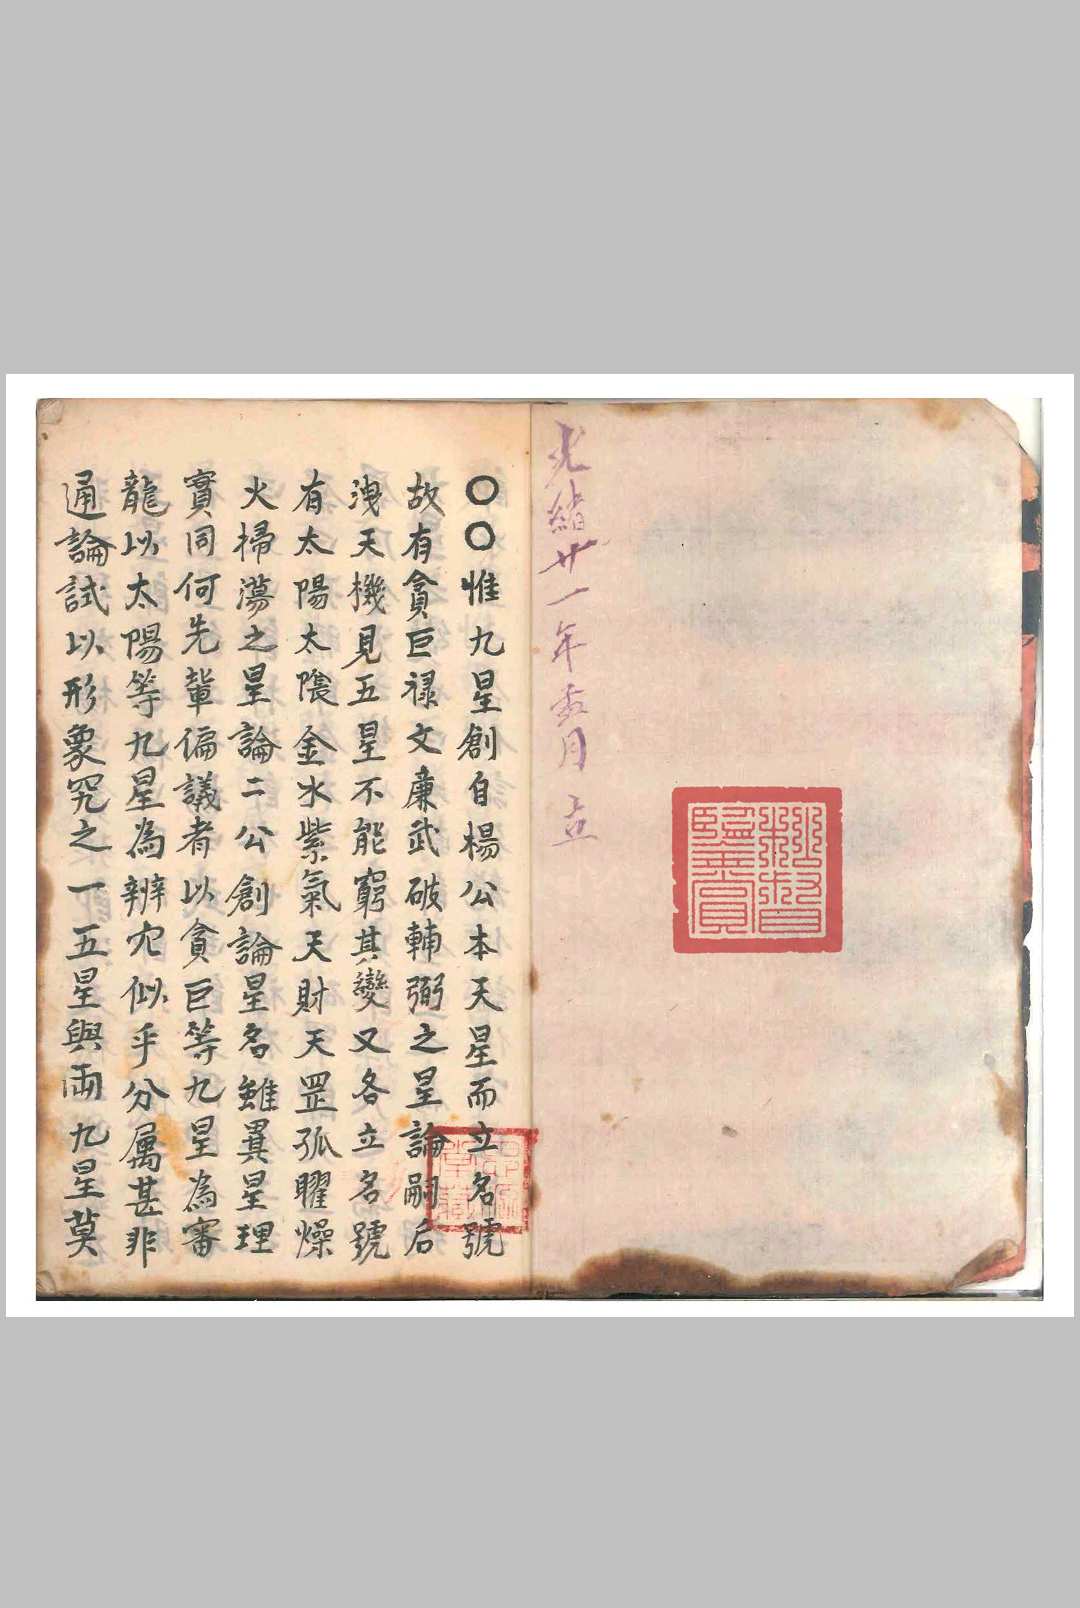 光緒廿一年
月立
〇〇惟九星創自楊公本天星而立名號
故有貪巨禄文廉武破輔弼之星論嗣后
洩天機見五星不能窮其變又各立名號
有太陽太陰金水紫氣天財天罡孤曜燥
火掃蕩之星論二公創論星名雖異星理
實同何先輩偏議者以貪巨等九星為審
龍以太陽等九星為辨穴似乎分属甚非
通論試以形象究之一五星與兩九星莫